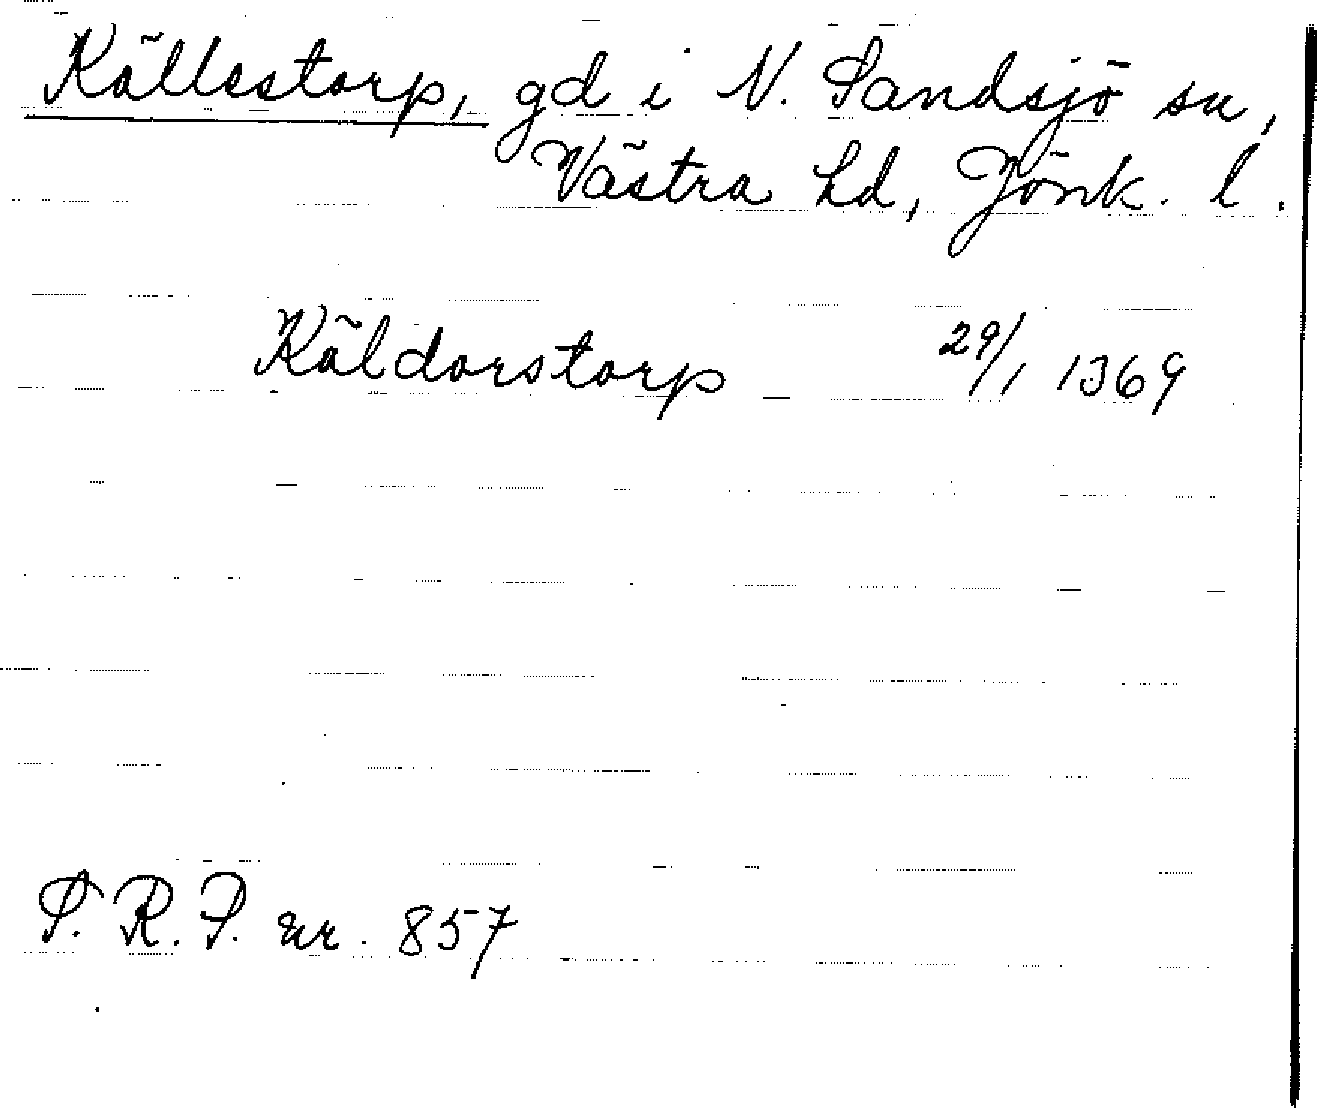 Källestorp, gd i N. Sandsjö sn,
Västra hd, Jönk. l.
Käldorstorp 29/1 1369
S. R. P. nr. 857